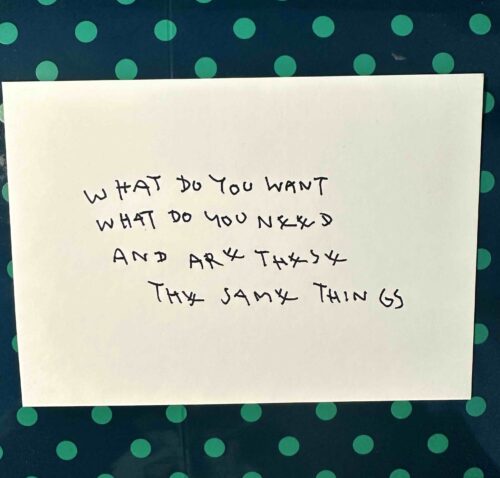 WHAT DO YOU WANT
WHAT DO YOU NEED
AND ARE THESE
THE SAME THINGS